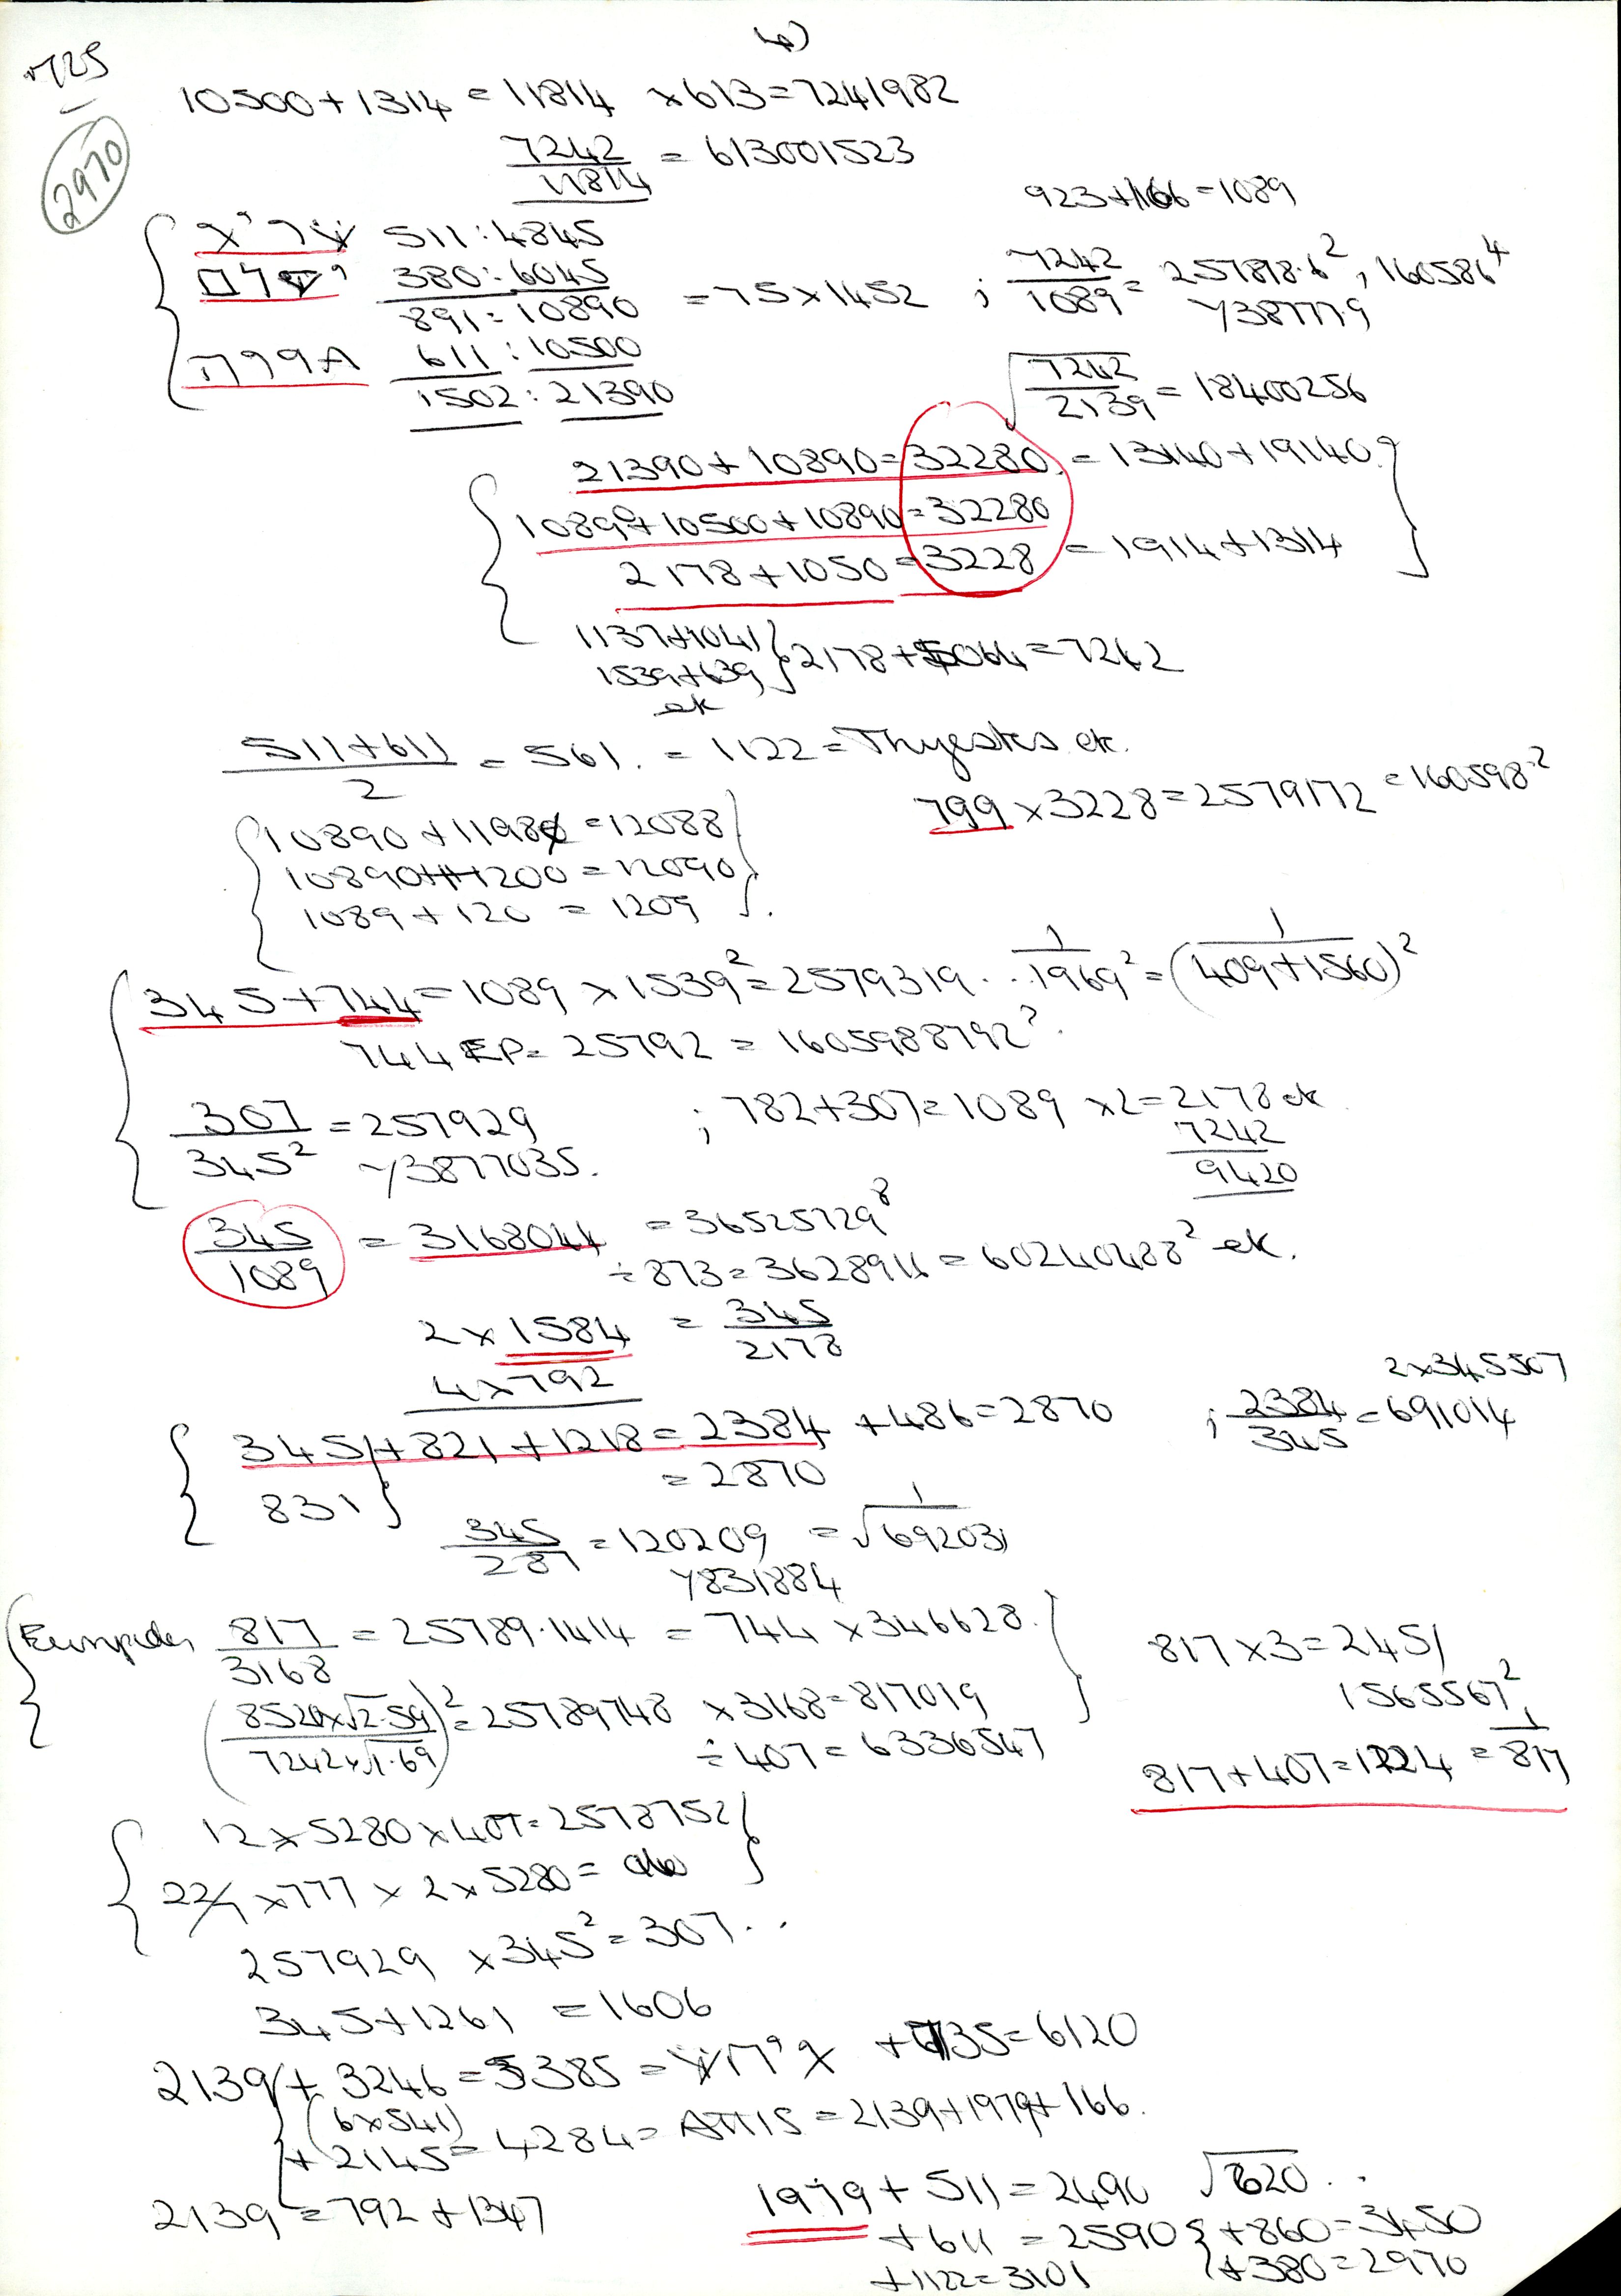 6)
725
2970
10500+1314 = 11814 ×613=7241982
7242/11814 = 613001523
923+166=1089
511:4845
380:6045
891:10890 = 75×1452 ; 7242/1089 = 257898.6², 160586⁴
γ387779
799A 611:10500
1502:21390
√7242/2139 = 18400256
21390+10890=32280 = 13140+19140
10890+10500+10890=32280
2178+1050=3228 = 1914+1314
1137+1041
1539+639 } 2178+5064=7242
etc
511+611/2 = 561. = 1122 = Thyestes etc.
799×3228=2579172 =160598.²
10890+1198=12088
10890+1200=12090
1089+120 = 1209
345+744=1089 ×1539²=2579319.. 1/1969² = (1/409+1560)²
744 EP= 25792 = 1605988792²
307/345² = 257929 ; 782+307=1089 ×2=2178 etc
γ3877035.
7242
9420
345/1089 = 3168044 = 36525729⁸
÷873=3628916=60240488² etc.
2×1584 = 345/2178
4×792
2×345507
345+821+1218=2384 +486=2870 ; 2384/345=691014
831 =2870
345/287 =120209 = 1/√692031
γ831884
Euripides 817/3168 = 25789.1414 = 744 ×346628.
817×3=2451
1565567²
(8520×√2.59/7242×√1.69)²=25789748 ×3168=817019
÷407=6336547
817+407=1224 = 1/817
12×5280×407=2578752
22/7×777×2×5280= do
257929 ×345²=307..
345+1261 =1606
2139+3246=5385= +735=6120
(6×541)
+2145=4284=ATTIS=2139+1979+166.
2139=792+1347
1979+511=2490 √620..
+611 =2590 { +860=3450
+1122=3101 +380=2970